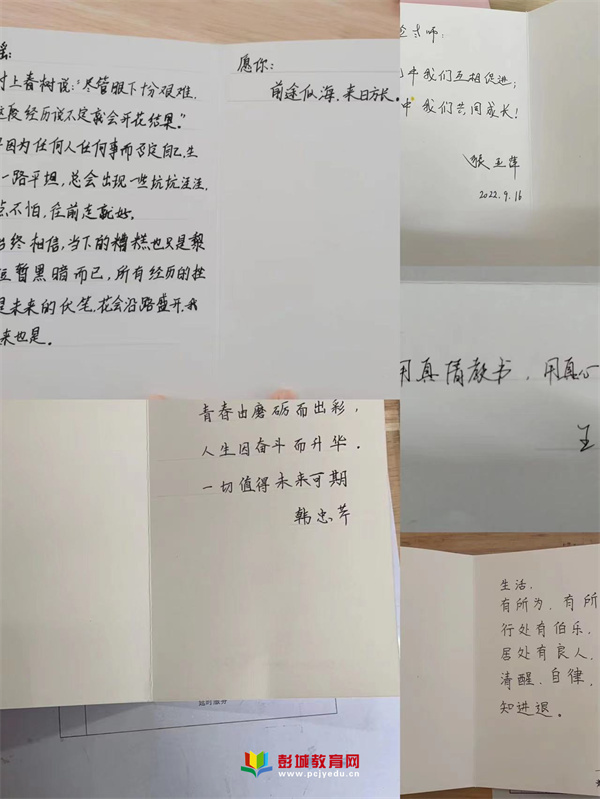 愿你：
前途似海，来日方长。
村上春树说："尽管眼下十分艰难，
这段经历说不定就会开花结果。"
因为任何人任何事而否定自己，生
一路平坦，总会出现一些坑坑洼洼，
不怕，往前走就好。
终相信，当下的糟糕也只是黎
暂黑暗而已，所有经历的挫
是未来的伏笔，花会沿路盛开，我
来也是。
老师：
中我们互相促进；
中我们共同成长！
张
2022.9.16
用真情教书，用真心
王
青春由磨砺而出彩，
人生因奋斗而升华。
一切值得未来可期
韩忠芹
生活，
有所为，有所
行处有伯乐，
居处有良人，
清醒，自律，
知进退。
延时服务
彭城教育网
www.pcjyedu.cn